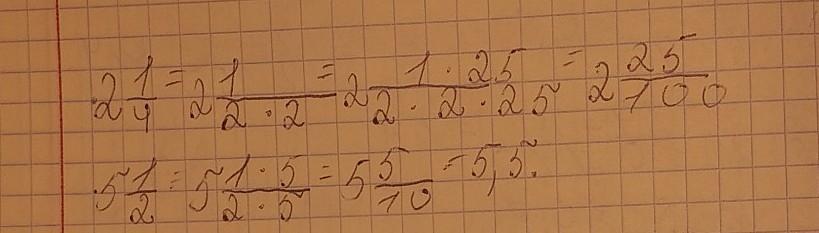 2 1/4 = 2 1/(2 · 2) = 2 (1 · 25)/(2 · 2 · 25) = 2 25/100
5 1/2 = 5 (1 · 5)/(2 · 5) = 5 5/10 = 5,5.